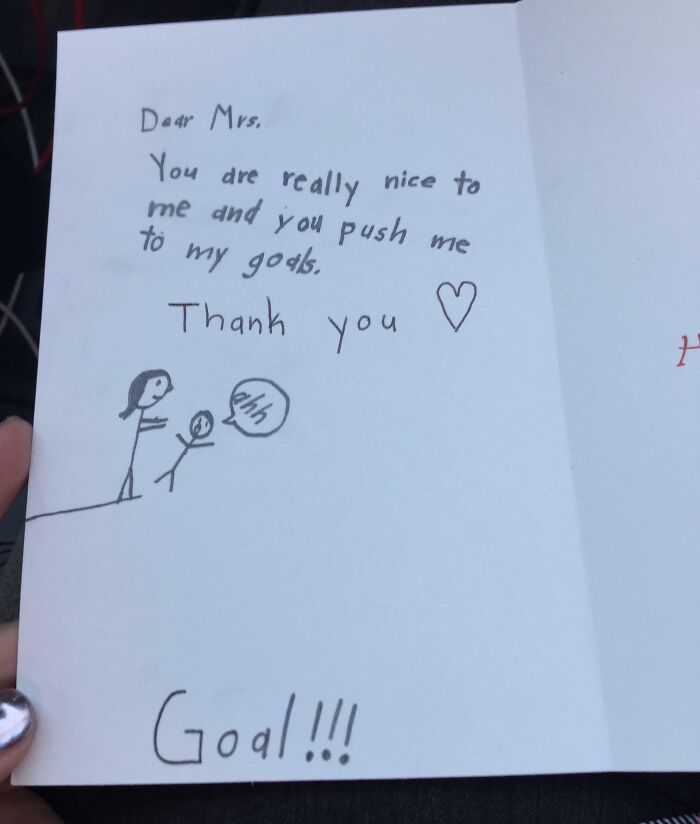 Dear Mrs.
You are really nice to
me and you push me
to my goals.
Thank you
ahh
Goal!!!
H